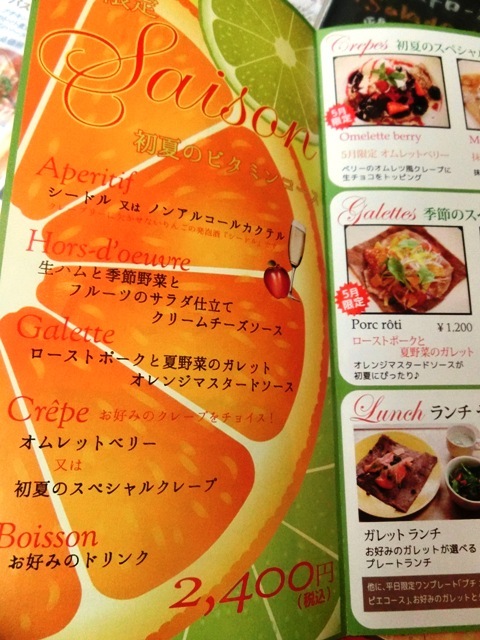 限定
Saison
初夏のビタミンコース
Aperitif
シードル 又は ノンアルコールカクテル
Hors-d'oeuvre
生ハムと季節野菜と
フルーツのサラダ仕立て
クリームチーズソース
Galette
ローストポークと夏野菜のガレット
オレンジマスタードソース
Crêpe お好みのクレープをチョイス!
オムレットベリー
又は
初夏のスペシャルクレープ
Boisson
お好みのドリンク
2,400円
(税込)
Crepes 初夏のスペシャル
5月
限定
Omelette berry
5月限定 オムレットベリー
ベリーのオムレツ風クレープに
生チョコをトッピング
Galettes 季節のス
5月
限定
Porc rôti ¥1,200
ローストポークと
夏野菜のガレット
オレンジマスタードソースが
初夏にぴったり♪
Lunch ランチ
ガレットランチ
お好みのガレットが選べる
プレートランチ
他に、平日限定ワンプレート「プチ
ピエコース」、お好みのガレットと